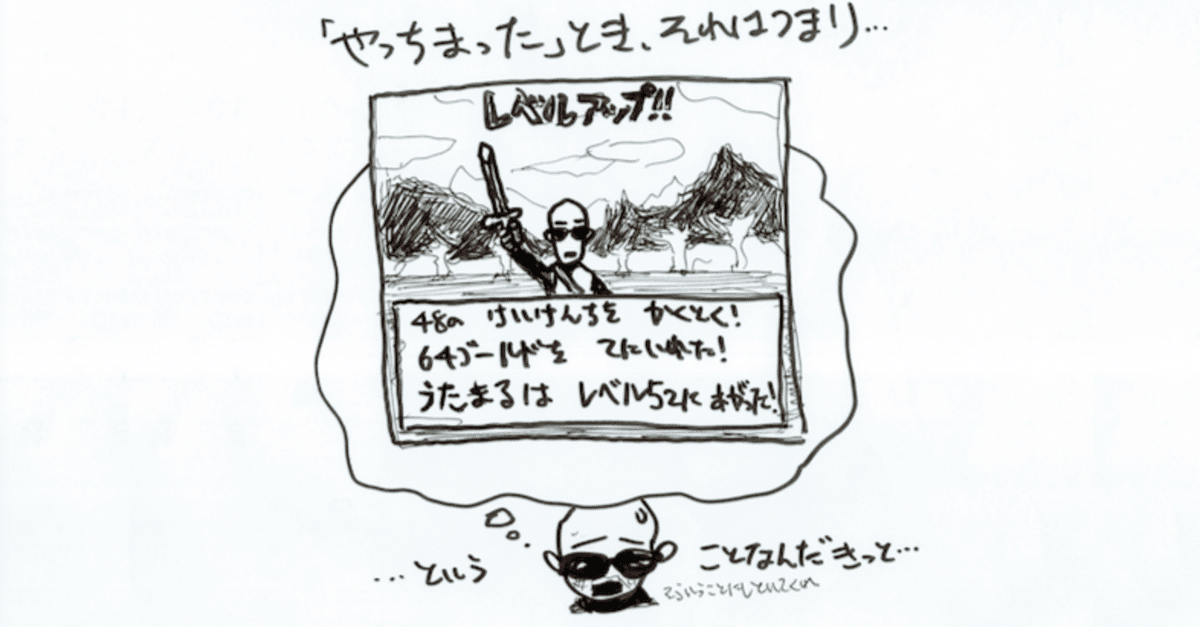 「やっちまった」とき、それはつまり…
レベルアップ!!
48の けいけんちを かくとく!
64ゴールドを てにいれた!
うたまるは レベル52に あがった!
…という
ことなんだきっと…
そういうことにしといてくれ